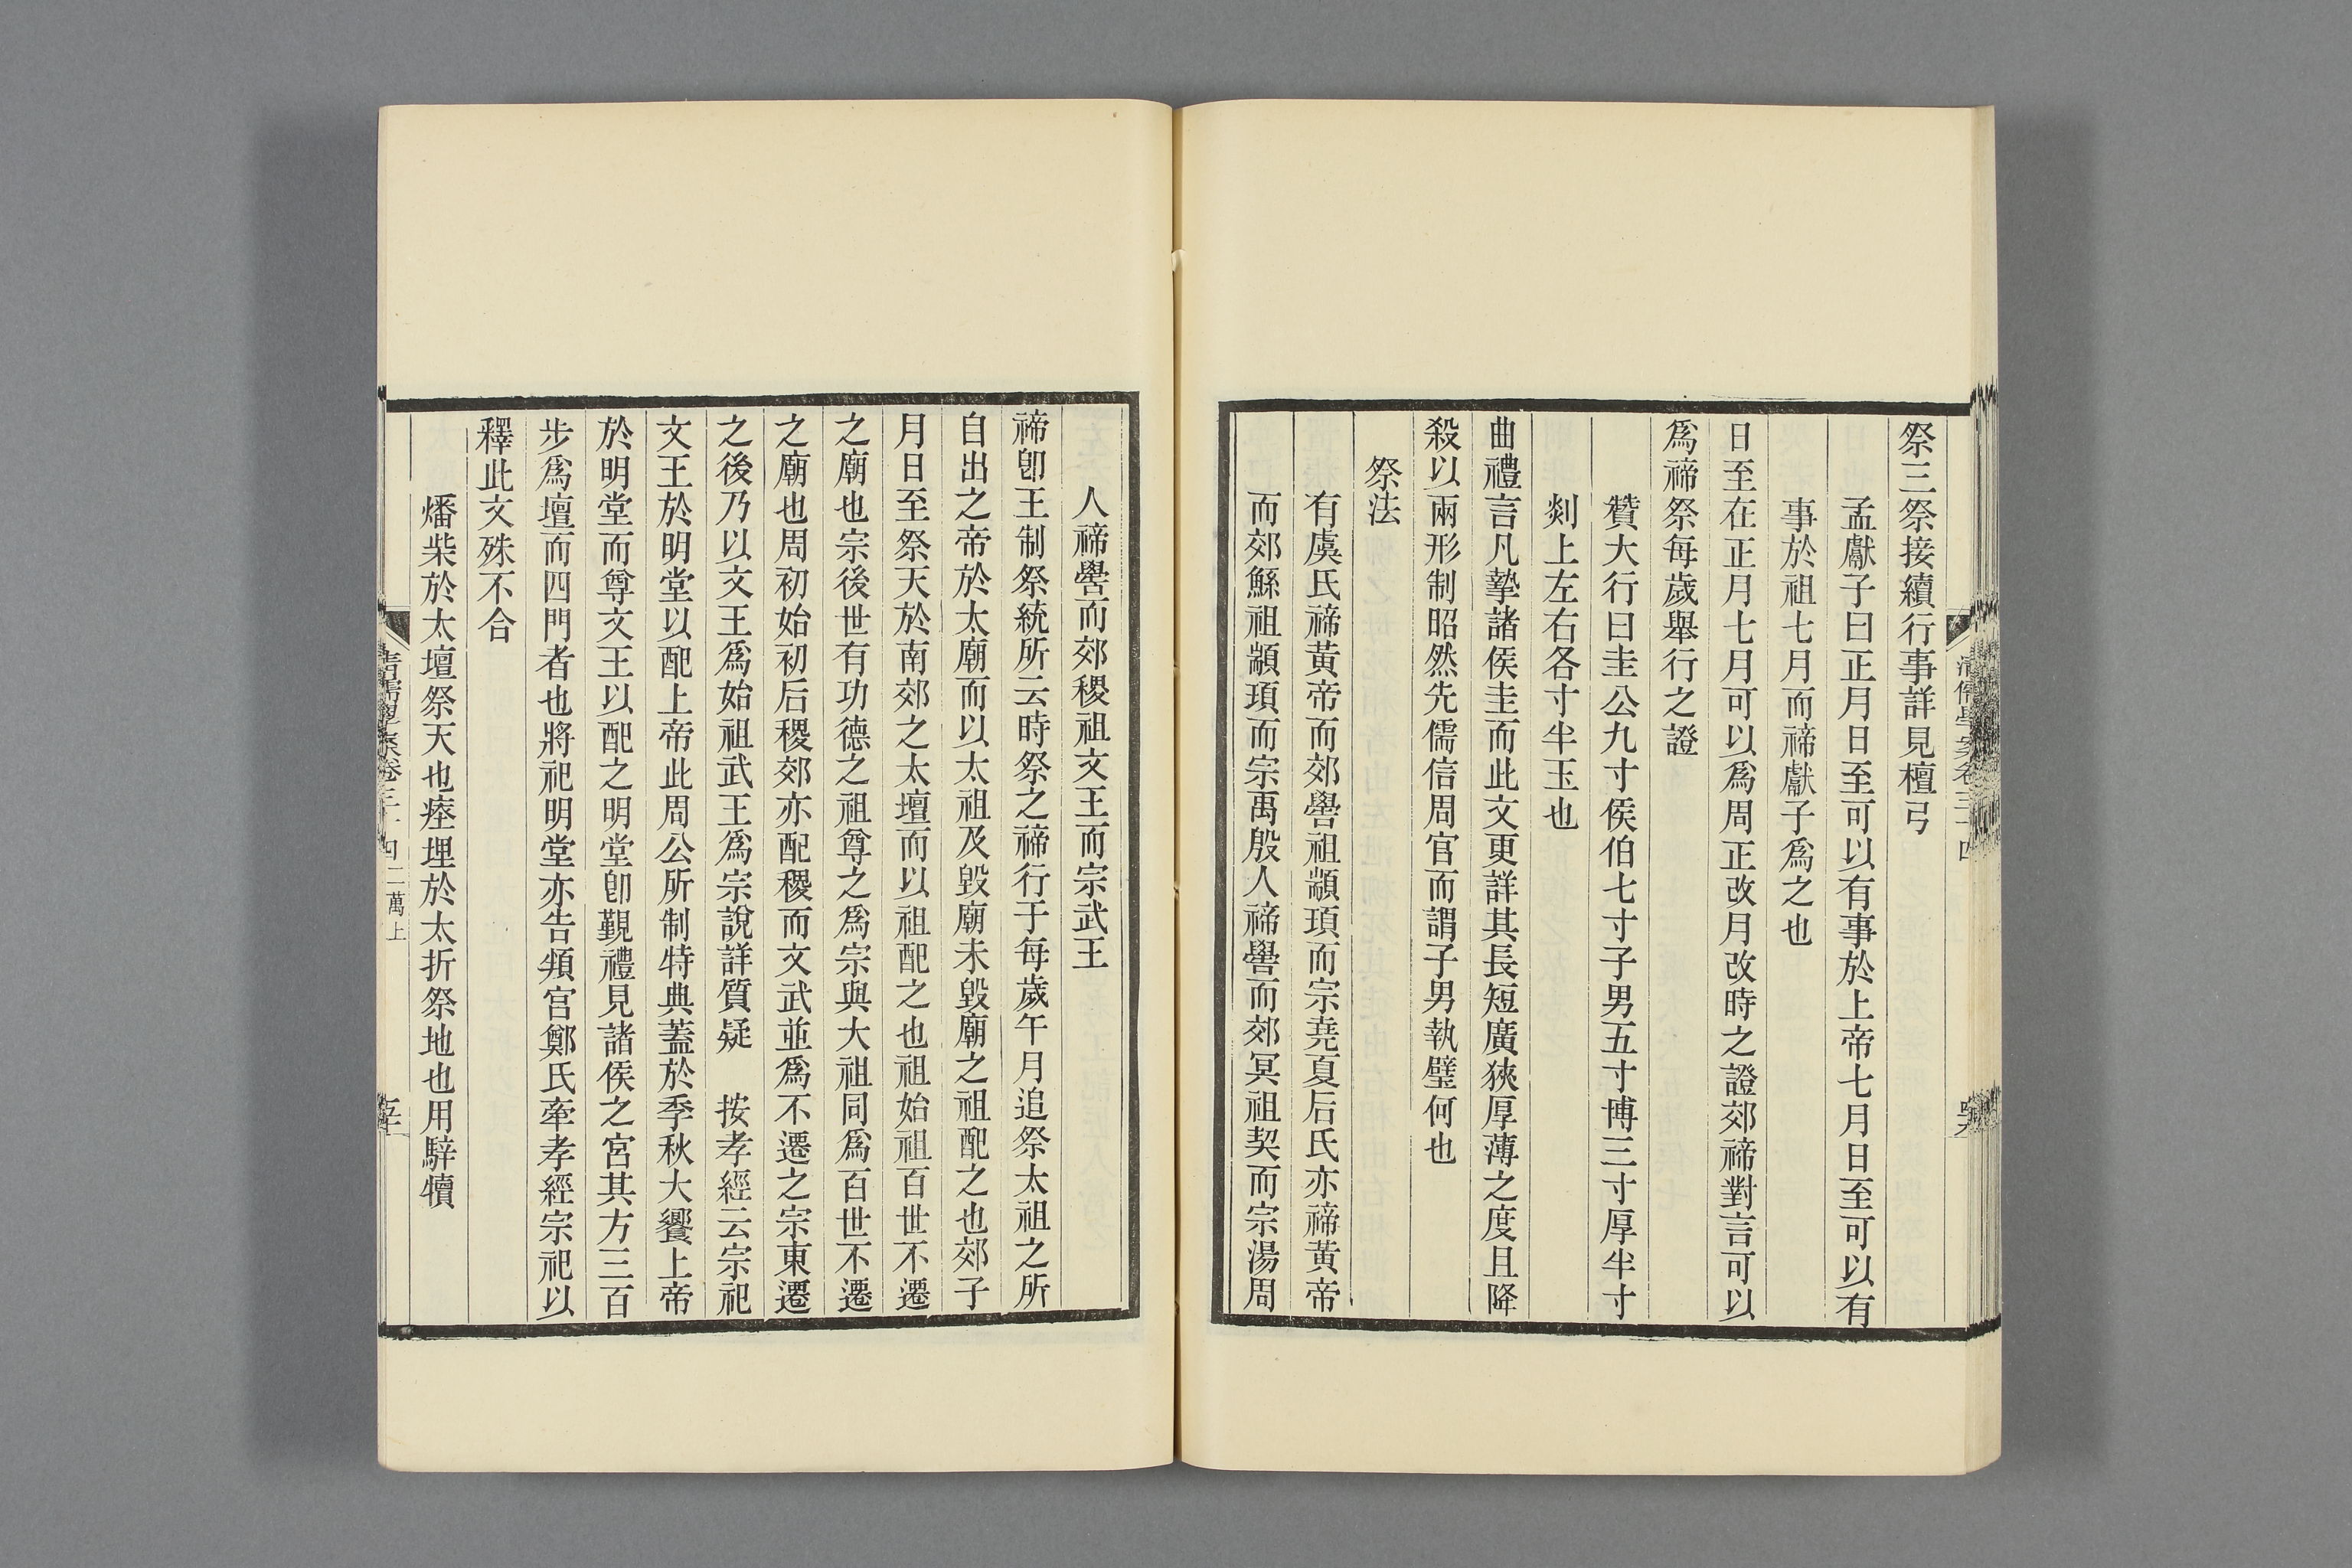 祭三祭接續行事詳見檀弓
孟獻子曰正月日至可以有事於上帝七月日至可以有
事於祖七月而禘獻子爲之也
日至在正月七月可以爲周正改月改時之證郊禘對言可以
爲禘祭每歲舉行之證
贊大行曰圭公九寸侯伯七寸子男五寸博三寸厚半寸
剡上左右各寸半玉也
曲禮言凡摯諸侯圭而此文更詳其長短廣狹厚薄之度且降
殺以兩形制昭然先儒信周官而謂子男執璧何也
祭法
有虞氏禘黃帝而郊嚳祖顓頊而宗堯夏后氏亦禘黃帝
而郊鯀祖顓頊而宗禹殷人禘嚳而郊冥祖契而宗湯周
人禘嚳而郊稷祖文王而宗武王
禘卽王制祭統所云時祭之禘行于每歲午月追祭太祖之所
自出之帝於太廟而以太祖及毀廟未毀廟之祖配之也郊子
月日至祭天於南郊之太壇而以祖配之也祖始祖百世不遷
之廟也宗後世有功德之祖尊之爲宗與大祖同爲百世不遷
之廟也周初始初后稷郊亦配稷而文武並爲不遷之宗東遷
之後乃以文王爲始祖武王爲宗說詳質疑　按孝經云宗祀
文王於明堂以配上帝此周公所制特典蓋於季秋大饗上帝
於明堂而尊文王以配之明堂卽覲禮見諸侯之宮其方三百
步爲壇而四門者也將祀明堂亦告頖宮鄭氏牽孝經宗祀以
釋此文殊不合
燔柴於太壇祭天也瘞埋於太折祭地也用騂犢
清儒學案卷二十四
二萬上